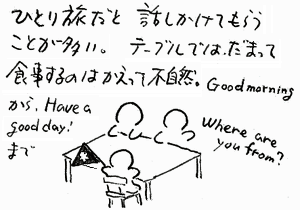 ひとり旅だと 話しかけてもらう
ことが多い。 テーブルでは、だまって
食事するのはかえって不自然。Good morning
から、Have a
good day!
まで
Where are
you from?